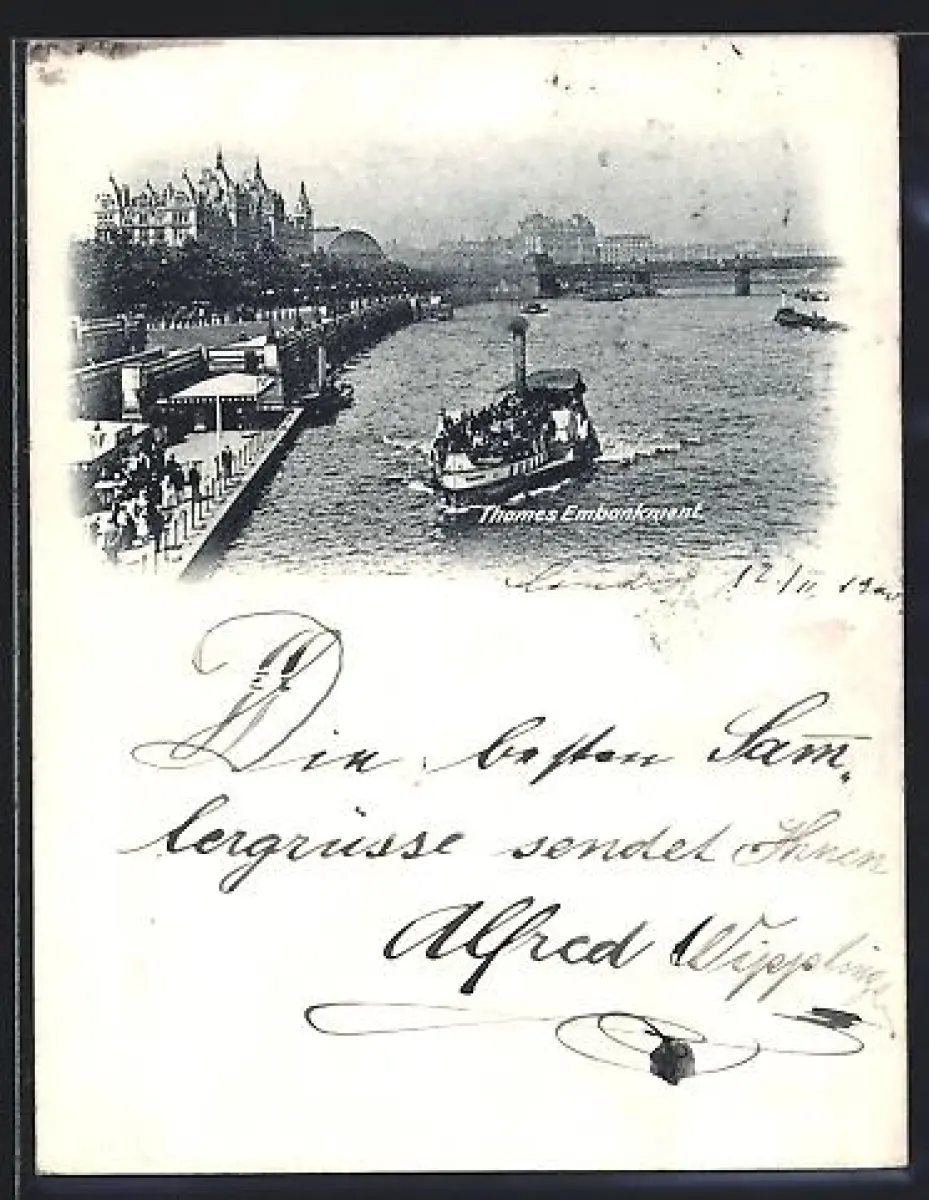 Thames Embankment
London, 12./II. 1900
Die besten Sam̅-
lergrüsse sendet Ihnen
Alfred Wipplinger